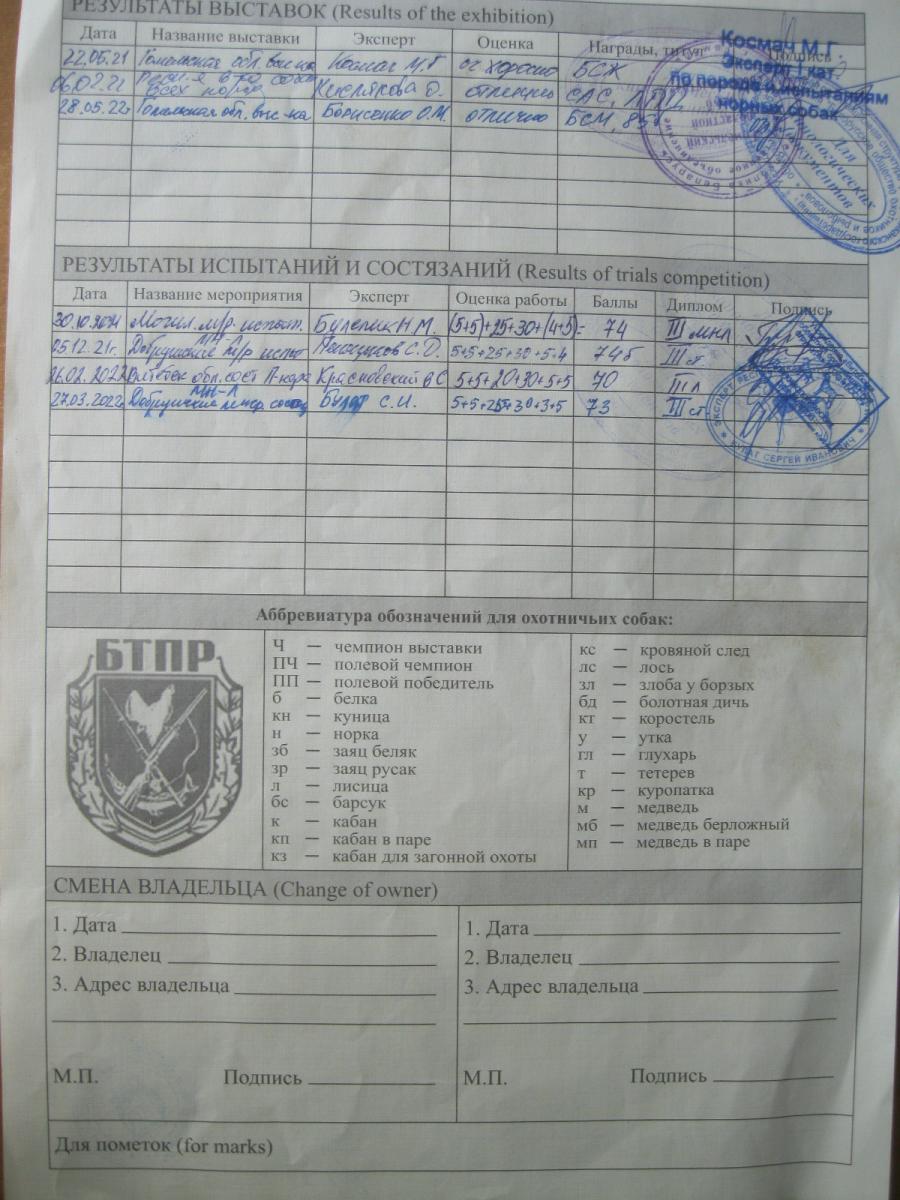 РЕЗУЛЬТАТЫ ВЫСТАВОК (Results of the exhibition)
Дата Название выставки Эксперт Оценка Награды, титул Подпись
22.05.21 Гомельская обл. выс-ка Космач М.Г оч хорошо БСЖ
06.02.22 всех пород О. отлично CAC,
28.05.22г Гомельская обл. выс-ка Борисенко О.М. отлично БСМ,
Космач М.Г.
Эксперт I кат.
по породе и испытаниям
норных собак
Для
кинологических
документов
РЕЗУЛЬТАТЫ ИСПЫТАНИЙ И СОСТЯЗАНИЙ (Results of trials competition)
Дата Название мероприятия Эксперт Оценка работы Баллы Диплом Подпись
30.10.2021 Могил. м/р. испыт. Н.М. (5+5)+25+30+(4+5)= 74 III
05.12.21г. Добрушские м/р испыт С.О. 5+5+25+30+5+4 74б III ст.
26.02.2022 Витебск обл. сост Красновский ВС 5+5+20+30+5+5 70 III л
27.03.2022г Добрушские межр. сост Булат С.И. 5+5+25+30+3+5 73 III ст.
БУЛАТ СЕРГЕЙ ИВАНОВИЧ
Аббревиатура обозначений для охотничьих собак:
БТПР
Ч — чемпион выставки
ПЧ — полевой чемпион
ПП — полевой победитель
б — белка
кн — куница
н — норка
зб — заяц беляк
зр — заяц русак
л — лисица
бс — барсук
к — кабан
кп — кабан в паре
кз — кабан для загонной охоты
кс — кровяной след
лс — лось
зл — злоба у борзых
бд — болотная дичь
кт — коростель
у — утка
гл — глухарь
т — тетерев
кр — куропатка
м — медведь
мб — медведь берложный
мп — медведь в паре
СМЕНА ВЛАДЕЛЬЦА (Change of owner)
1. Дата
2. Владелец
3. Адрес владельца
М.П. Подпись
1. Дата
2. Владелец
3. Адрес владельца
М.П. Подпись
Для пометок (for marks)